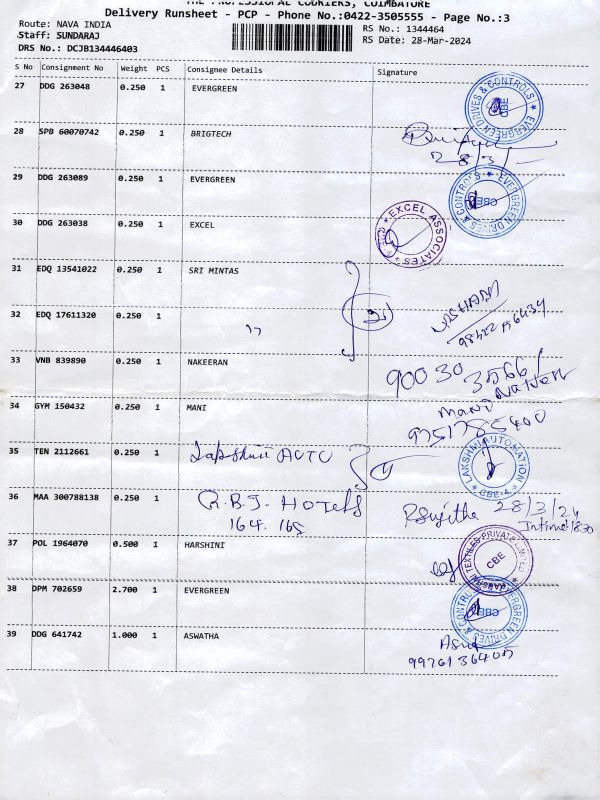 THE PROFESSIONAL COURIERS, COIMBATORE
Delivery Runsheet - PCP - Phone No.:0422-3505555 - Page No.:3
Route: NAVA INDIA
Staff: SUNDARAJ
DRS No.: DCJB134446403
RS No.: 1344464
RS Date: 28-Mar-2024
S No Consignment No Weight PCS Consignee Details Signature
27 DDG 263048 0.250 1 EVERGREEN
EVERGREEN DRIVES & CONTROLS CBE
28 SPB 60070742 0.250 1 BRIGTECH
28/3/
29 DDG 263089 0.250 1 EVERGREEN
EVERGREEN DRIVES & CONTROLS CBE
30 DDG 263038 0.250 1 EXCEL
EXCEL ASSOCIATES
31 EDQ 13541022 0.250 1 SRI MINTAS
32 EDQ 17611320 0.250 1
33 VNB 839890 0.250 1 NAKEERAN
90030
34 GYM 150432 0.250 1 MANI
Mani
9751785400
35 TEN 2112661 0.250 1 Lakshmi AUTO
LAKSHMI AUTOMATION CBE-4
36 MAA 300788138 0.250 1 R.B.J. HOTELS
164. 165
28/3/24
Intime:
37 POL 1964070 0.500 1 HARSHINI
TEXTILES PRIVATE LIMITED CBE
38 DPM 702659 2.700 1 EVERGREEN
EVERGREEN DRIVES & CONTROLS CBE
39 DDG 641742 1.000 1 ASWATHA